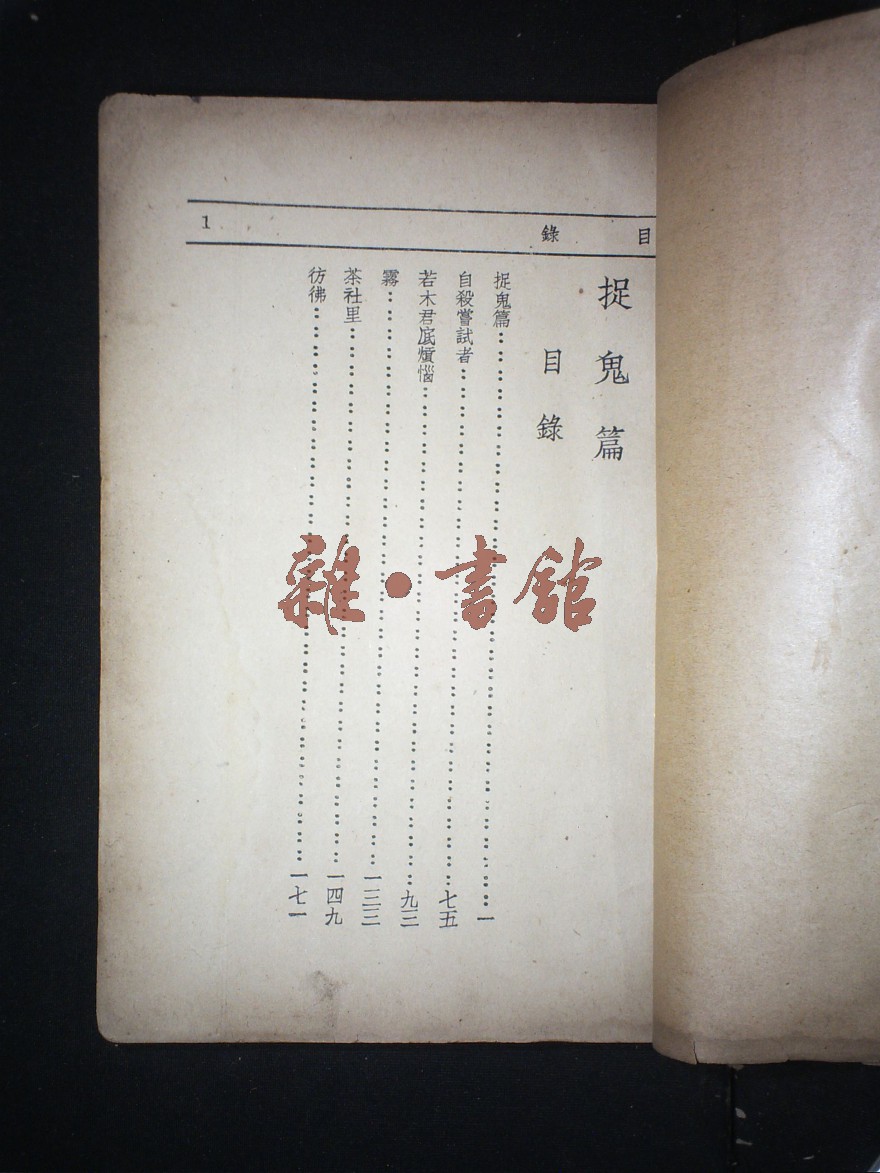 目錄
1
捉鬼篇
目錄
捉鬼篇……一
自殺嘗試者……七五
若木君底煩惱……九三
霧……一三三
茶社里……一四九
彷彿……一七一
雜·書館